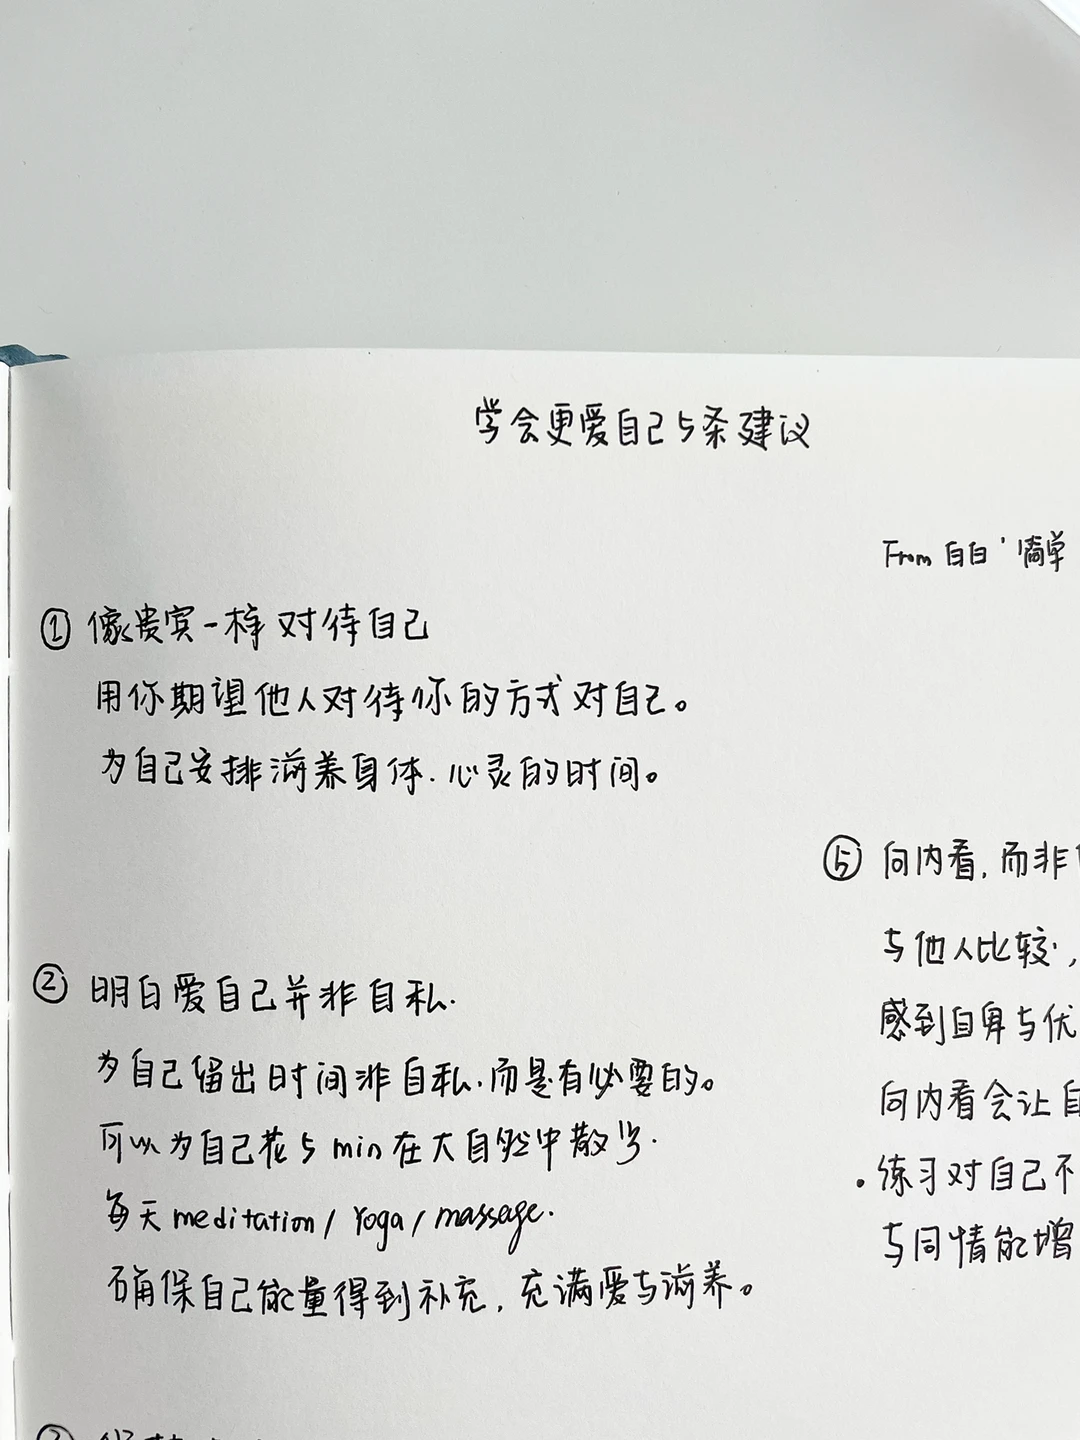 学会更爱自己5条建议
From 白白'简单
① 像贵宾一样对待自己
用你期望他人对待你的方式对自己。
为自己安排滋养身体.心灵的时间。
② 明白爱自己并非自私.
为自己留出时间非自私.而是有必要的。
可以为自己花5min在大自然中散步.
每天meditation/Yoga/massage.
确保自己能量得到补充,充满爱与滋养。
⑤ 向内看,而非
与他人比较,
感到自卑与优
向内看会让自
·练习对自己不
与同情能增